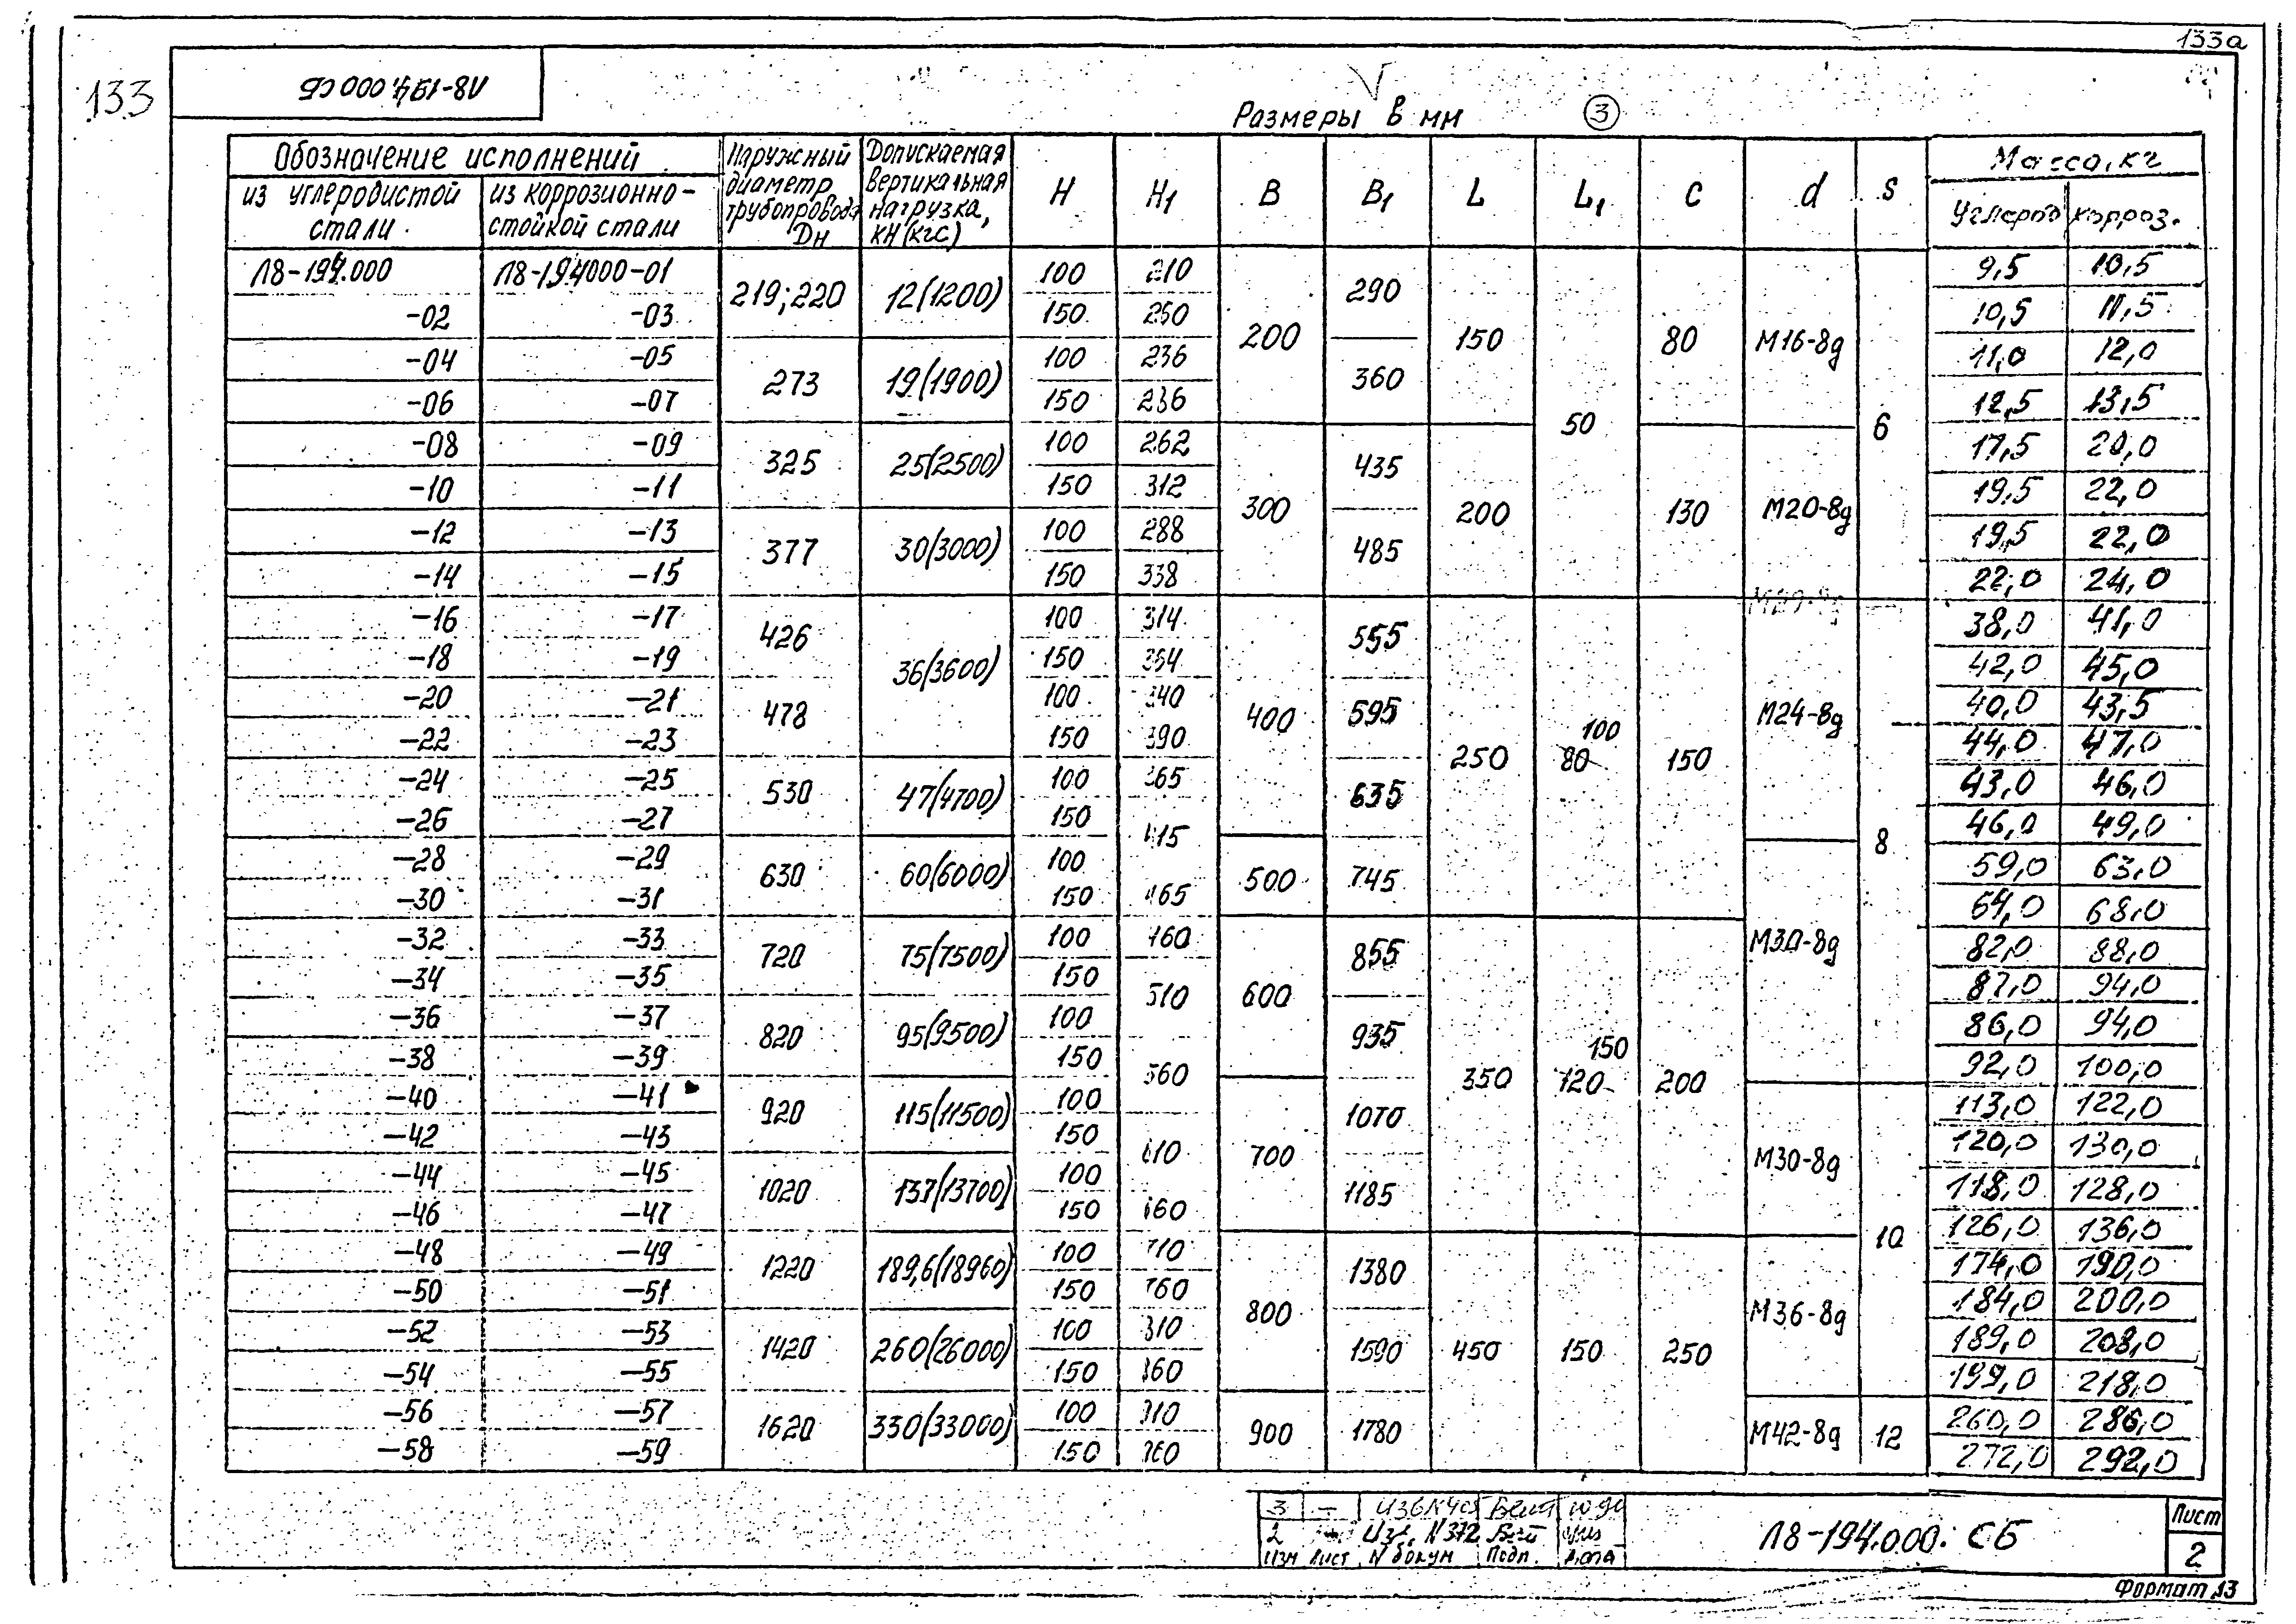 133а
133
Л8-194.000 СБ
Размеры в мм ③
Обозначение исполнений
из углеродистой стали
из коррозионно-стойкой стали
Наружный диаметр трубопровода Dн
Допускаемая вертикальная нагрузка, кН(кгс)
H H1 B B1 L L1 c d s
Масса, кг
Углерод корроз.
Л8-194.000 Л8-194000-01 219;220 12(1200) 100 210 200 290 150 50 80 М16-8g 6 9,5 10,5
-02 -03 150 260 10,5 11,5
-04 -05 273 19(1900) 100 236 360 11,0 12,0
-06 -07 150 236 12,5 13,5
-08 -09 325 25(2500) 100 262 300 435 200 130 М20-8g 17,5 20,0
-10 -11 150 312 19,5 22,0
-12 -13 377 30(3000) 100 288 485 19,5 22,0
-14 -15 150 338 22,0 24,0
-16 -17 426 36(3600) 100 314 400 555 250 100 80 150 М24-8g 8 38,0 41,0
-18 -19 150 364 42,0 45,0
-20 -21 478 100 340 595 40,0 43,5
-22 -23 150 390 44,0 47,0
-24 -25 530 47(4700) 100 365 635 43,0 46,0
-26 -27 150 415 46,0 49,0
-28 -29 630 60(6000) 100 500 745 М30-8g 59,0 63,0
-30 -31 150 465 64,0 68,0
-32 -33 720 75(7500) 100 460 600 855 350 150 120 200 82,0 88,0
-34 -35 150 510 87,0 94,0
-36 -37 820 95(9500) 100 935 86,0 94,0
-38 -39 150 560 92,0 100,0
-40 -41 920 115(11500) 100 700 1070 М30-8g 10 113,0 122,0
-42 -43 150 610 120,0 130,0
-44 -45 1020 137(13700) 100 1185 118,0 128,0
-46 -47 150 660 126,0 136,0
-48 -49 1220 189,6(18960) 100 710 800 1380 450 150 250 М36-8g 174,0 190,0
-50 -51 150 760 184,0 200,0
-52 -53 1420 260(26000) 100 810 1590 189,0 208,0
-54 -55 150 860 199,0 218,0
-56 -57 1620 330(33000) 100 910 900 1780 М42-8g 12 260,0 286,0
-58 -59 150 960 272,0 292,0
3 -
2 Изг. N372
Изм Лист N докум Подп. Дата
Л8-194.000. СБ
Лист
2
Формат 13